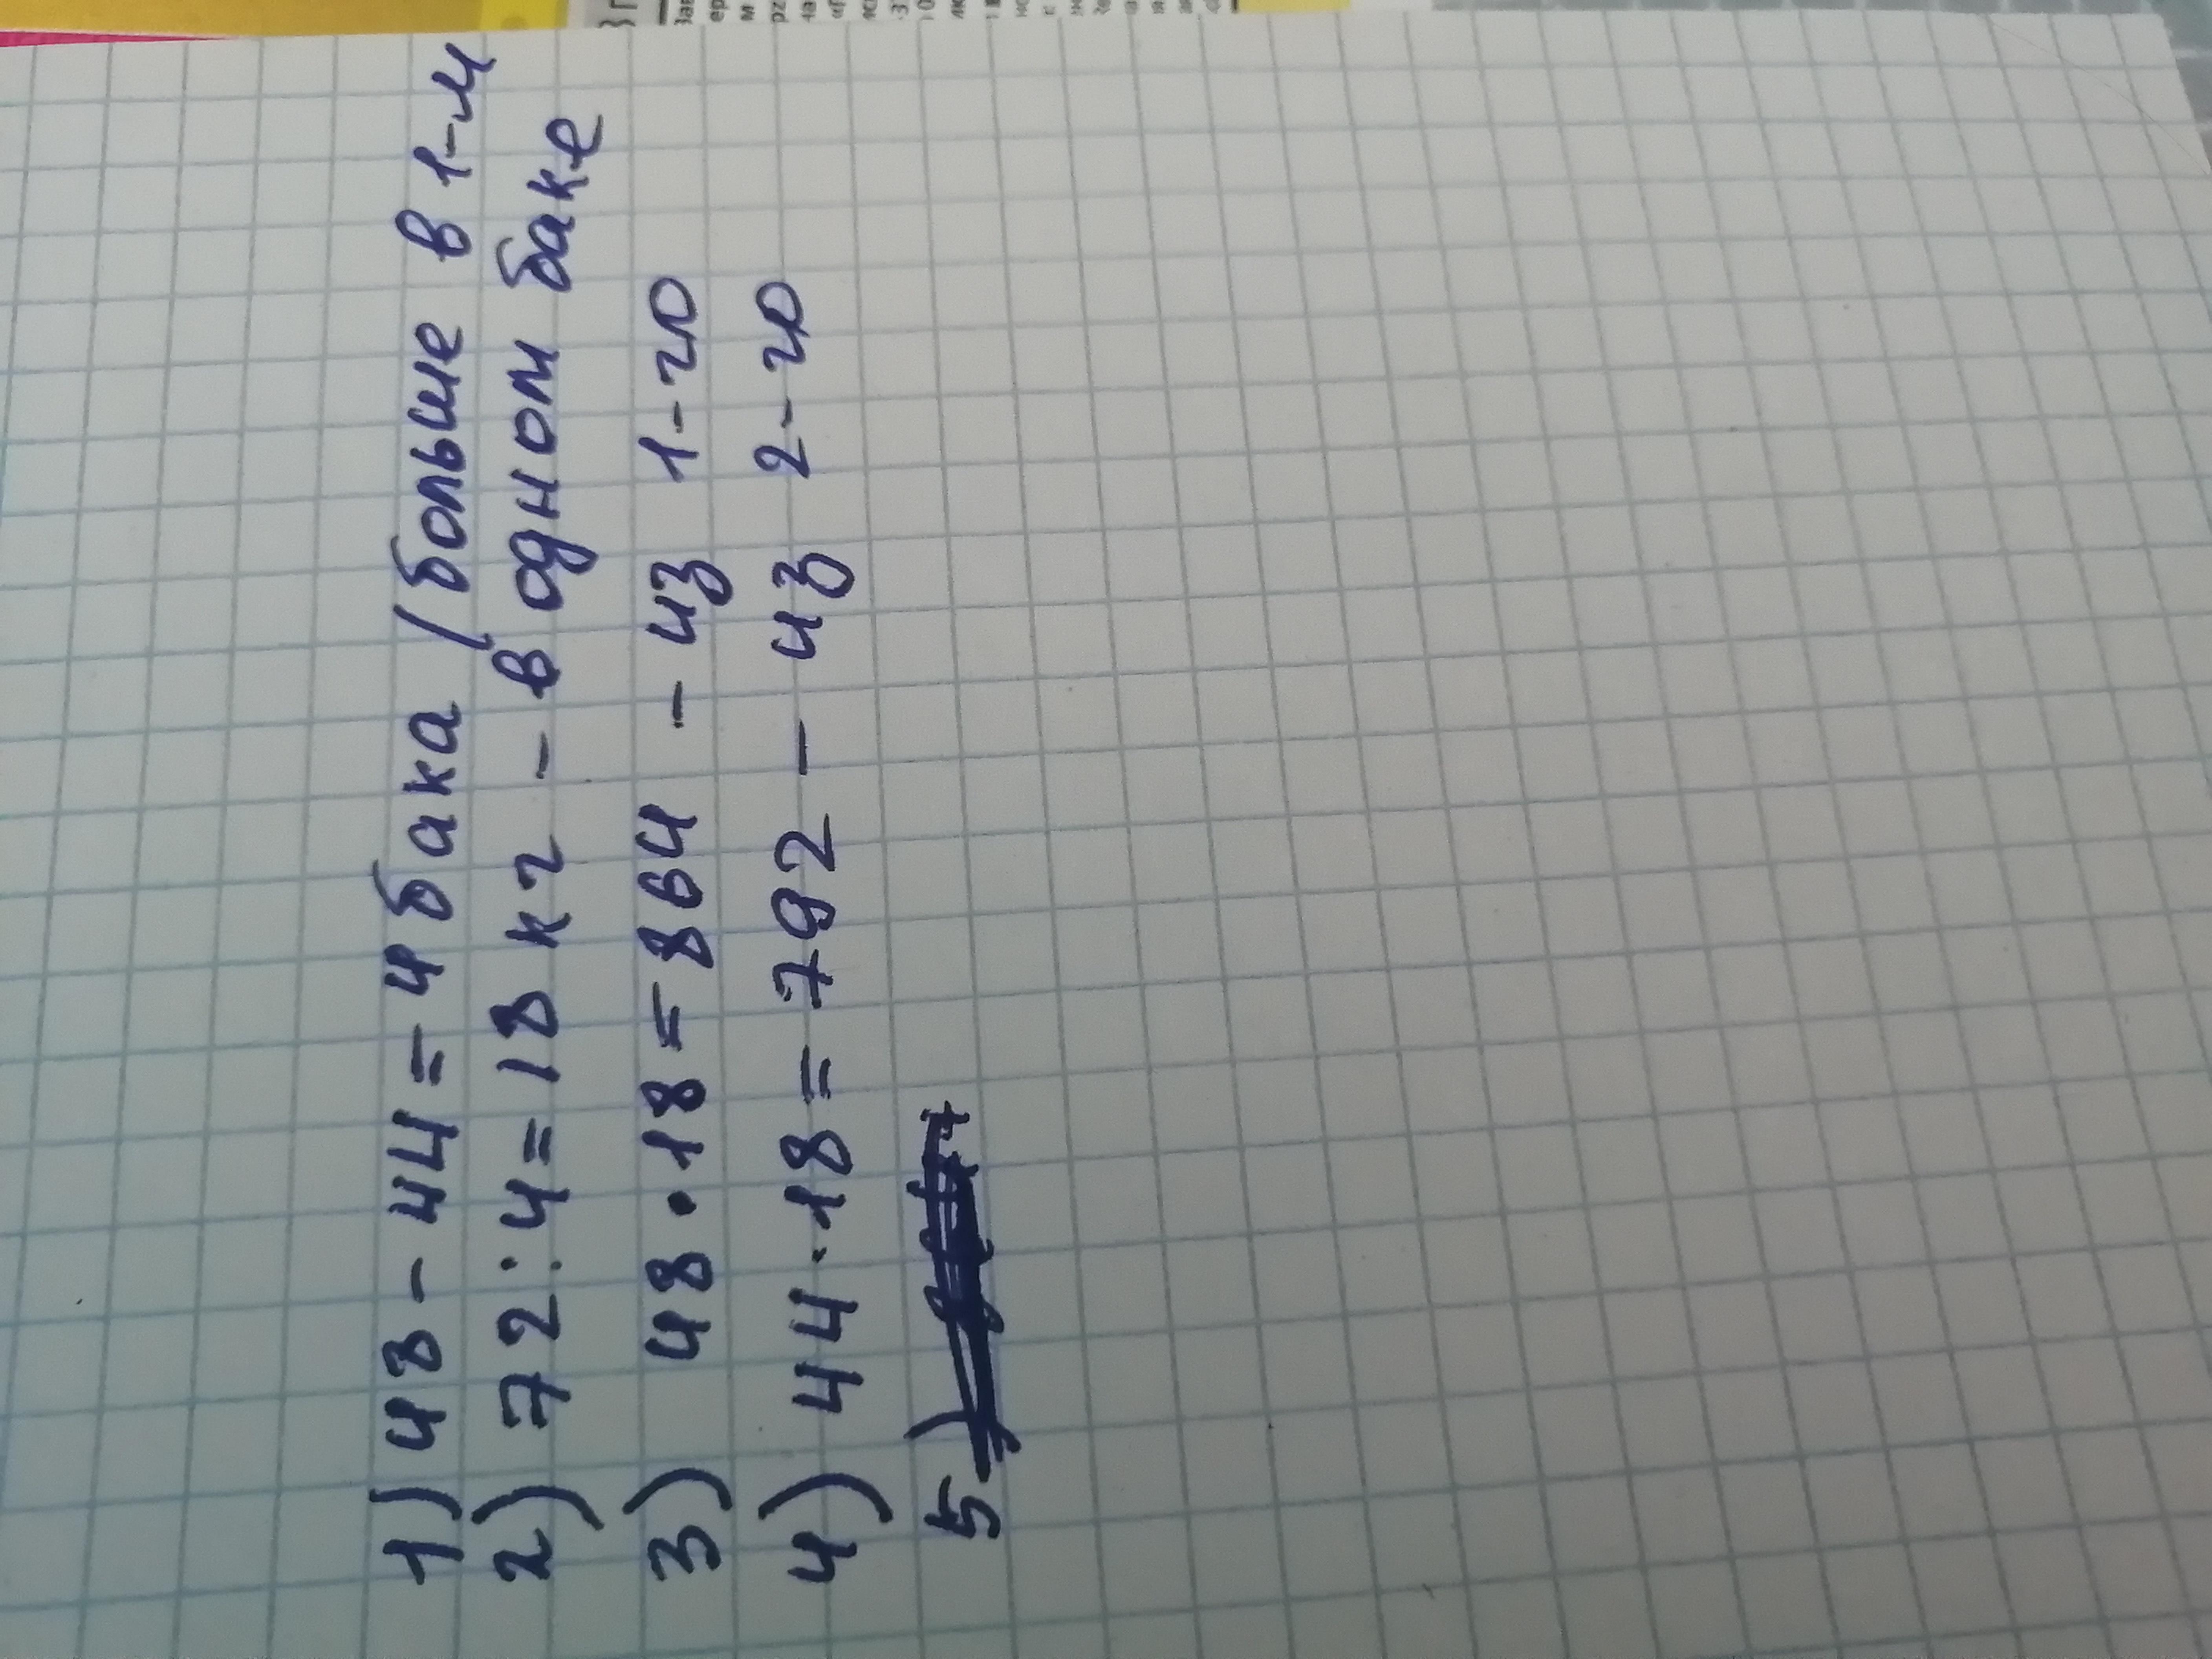 1) 48 - 44 = 4 бака (больше в 1-м
2) 72 : 4 = 18 кг - в одном баке
3) 48 · 18 = 864 - из 1-го
4) 44 · 18 = 792 - из 2-го
5)